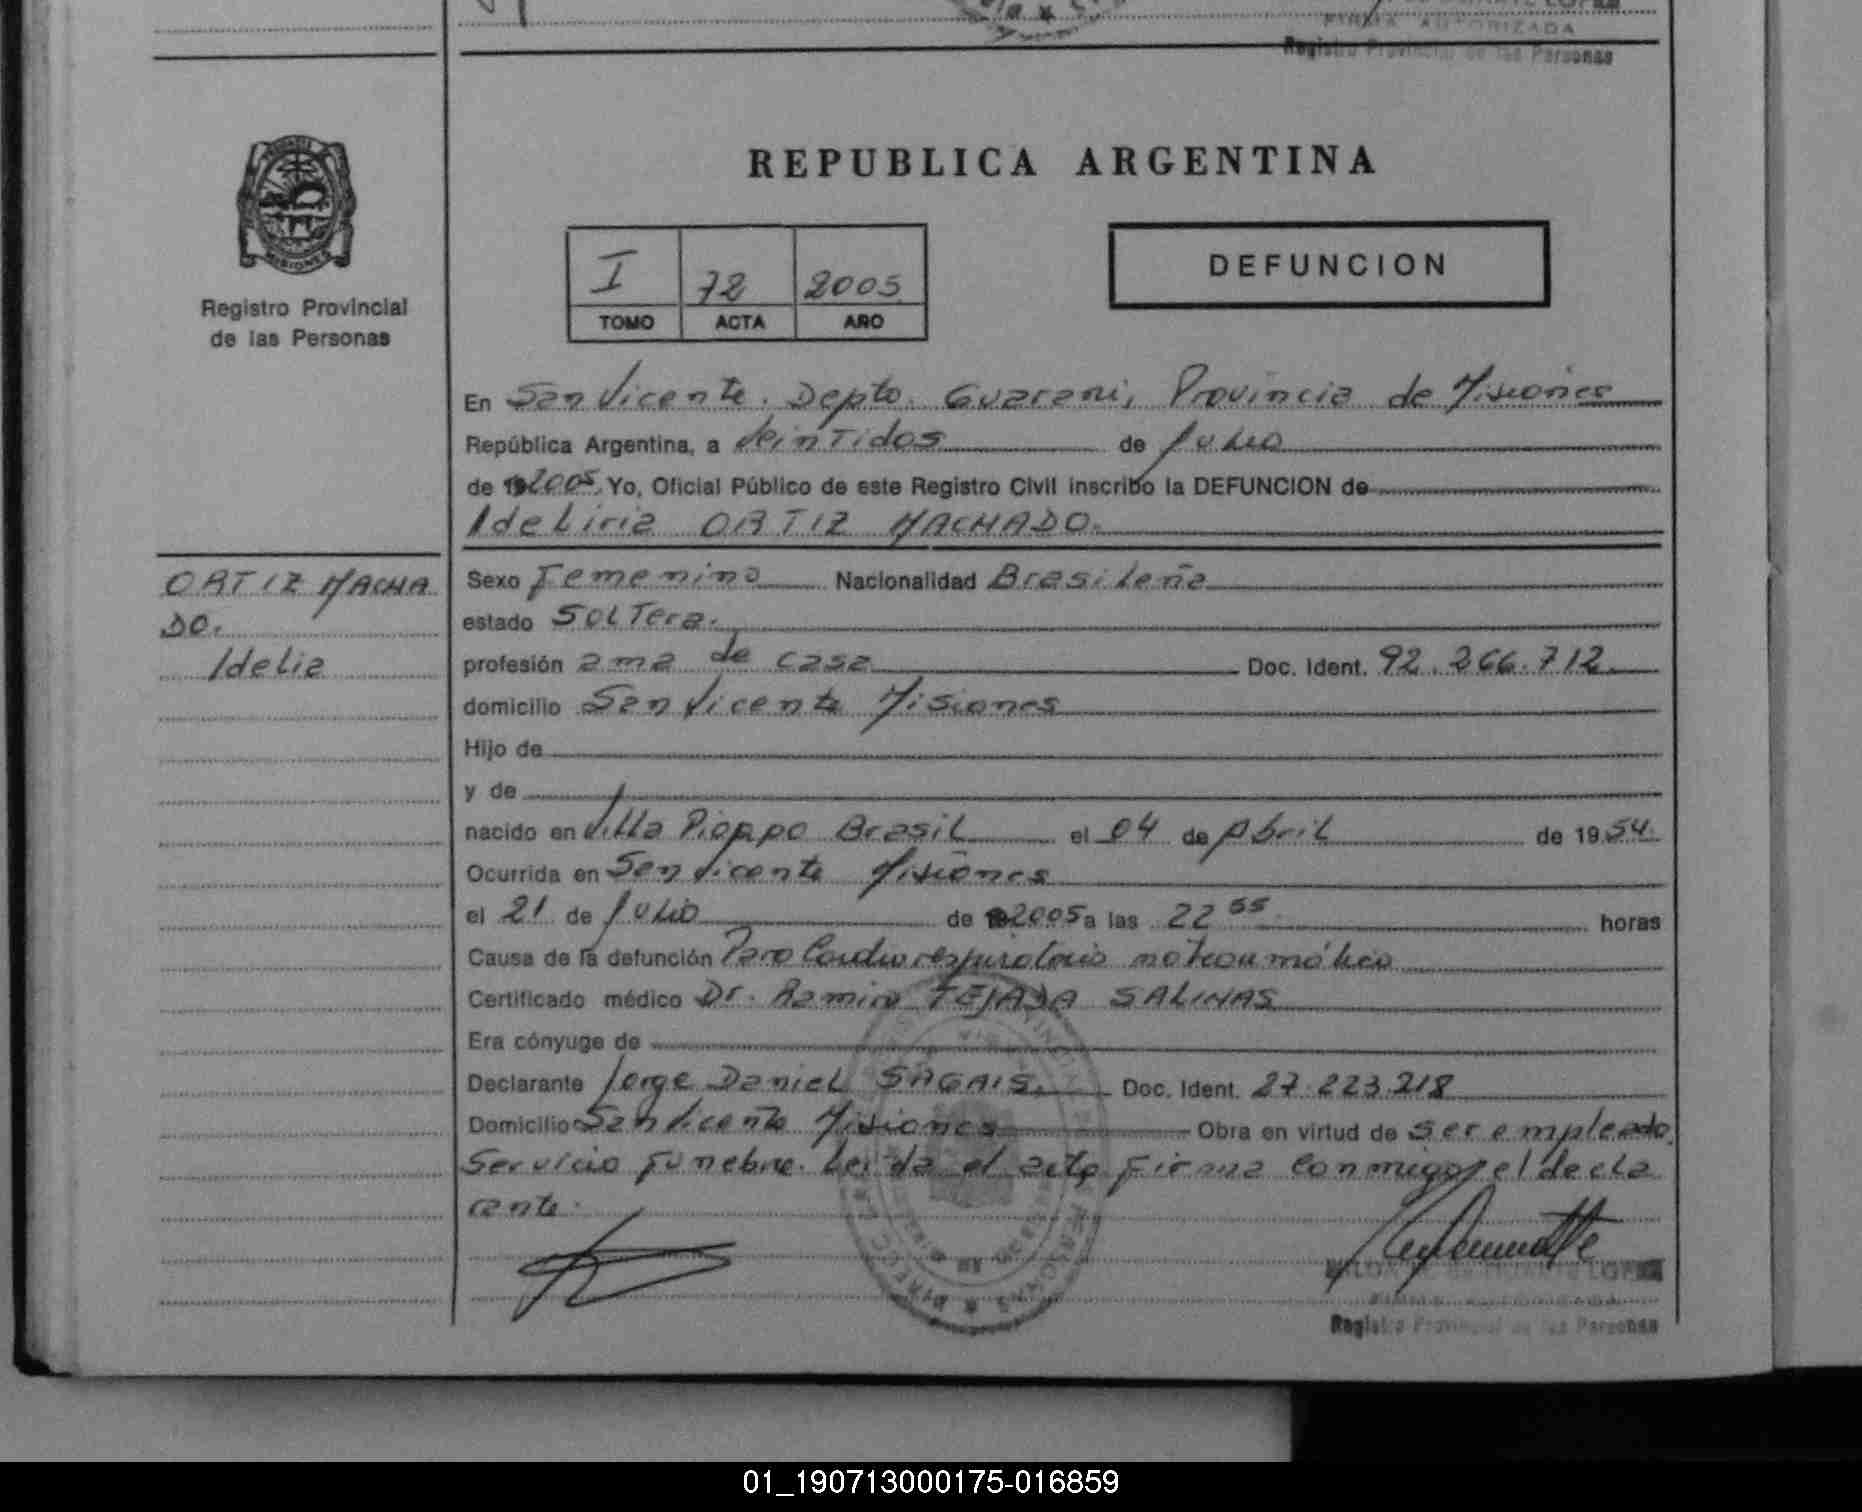 FIRMA AUTORIZADA
Registro Provincial de las Personas
MISIONES
Registro Provincial
de las Personas
REPUBLICA ARGENTINA
I 72 2005
TOMO ACTA AÑO
DEFUNCION
En San Vicente. Depto. Guarani, Provincia de Misiones
República Argentina, a Veintidos de Julio
de 2005. Yo, Oficial Público de este Registro Civil inscribo la DEFUNCION de
Ideliria ORTIZ MACHADO.
ORTIZ MACHA
DO.
Idelia
Sexo Femenino Nacionalidad Brasileña
estado SOLTera.
profesión ama de casa Doc. Ident. 92.266.712.
domicilio San Vicente Misiones
Hijo de
y de
nacido en Villa Pioppo Brasil el 04 de Abril de 1954.
Ocurrida en San Vicente Misiones
el 21 de Julio de 2005 a las 22 55 horas
Causa de la defunción Paro Cardiorespiratorio notraumático
Certificado médico Dr. Ramiro TEJADA SALINAS
Era cónyuge de
Declarante Jorge Daniel SAGAIS. Doc. Ident. 27.223.218
Domicilio San Vicente Misiones Obra en virtud de ser empleado
Servicio Funebre. Leida el acta firma Conmigo, el decla
rante.
FIRMA AUTORIZADA
Registro Provincial de las Personas
01_190713000175-016859